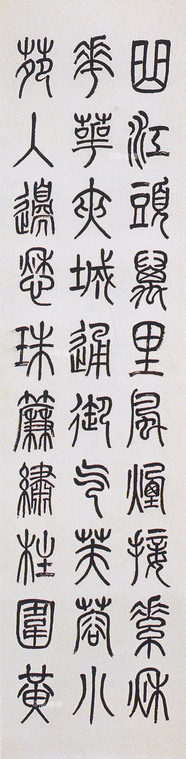 曲江頭萬里風煙接素秋
花萼夾城通御气芙蓉小
苑入邊愁珠簾繡柱圍黃